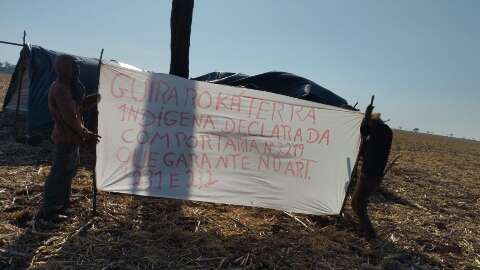 GUIRAROKA TERRA
INDIGENA DECLARADA
COM PORTARIA N: 219
QUE GARANTE NU ART.
231 E 232